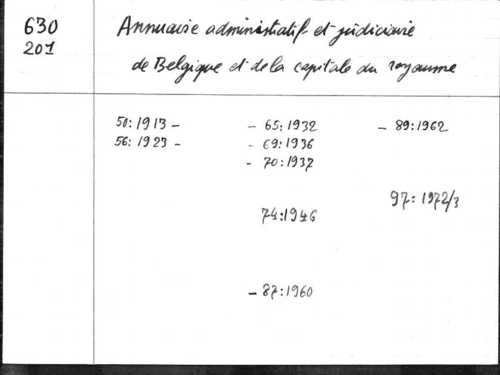 630
201
Annuaire administratif et judiciaire
de Belgique et de la capitale du royaume
50:1913 -
56:1923 -
- 65:1932
- 69:1936
- 70:1937
74:1946
- 87:1960
- 89:1962
97:1972/3